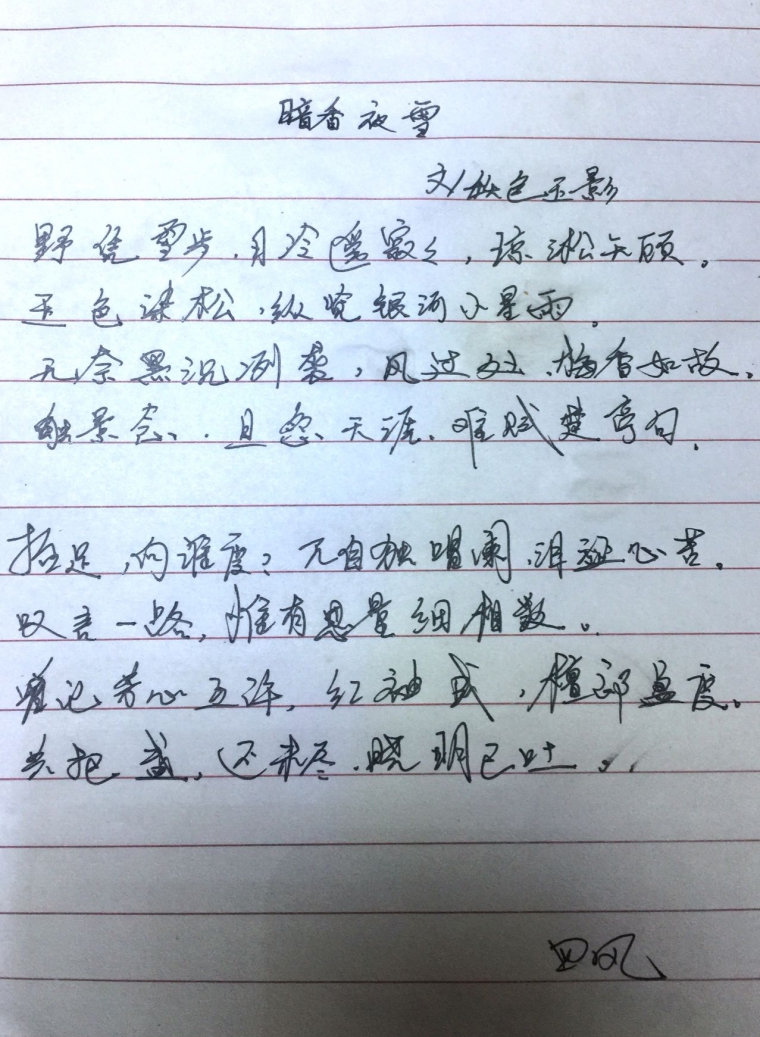 暗香 夜雪
文/秋色玉影
野凭雪步,月冷遥寂々,琼淞矢顾。
玉色染松,纵览银河小星雨。
无奈黑沉冽袭,风过处,梅香如故。
触景念,且怨天涯,难赋楚亭句。
,向谁度?兀自独唱阑,泪证心苦。
叹言一路,惟有思量细相数。
曾记芳心互许,红袖或,檀郎盈度。
共把盏,还未尽,晓明已吐。
四风